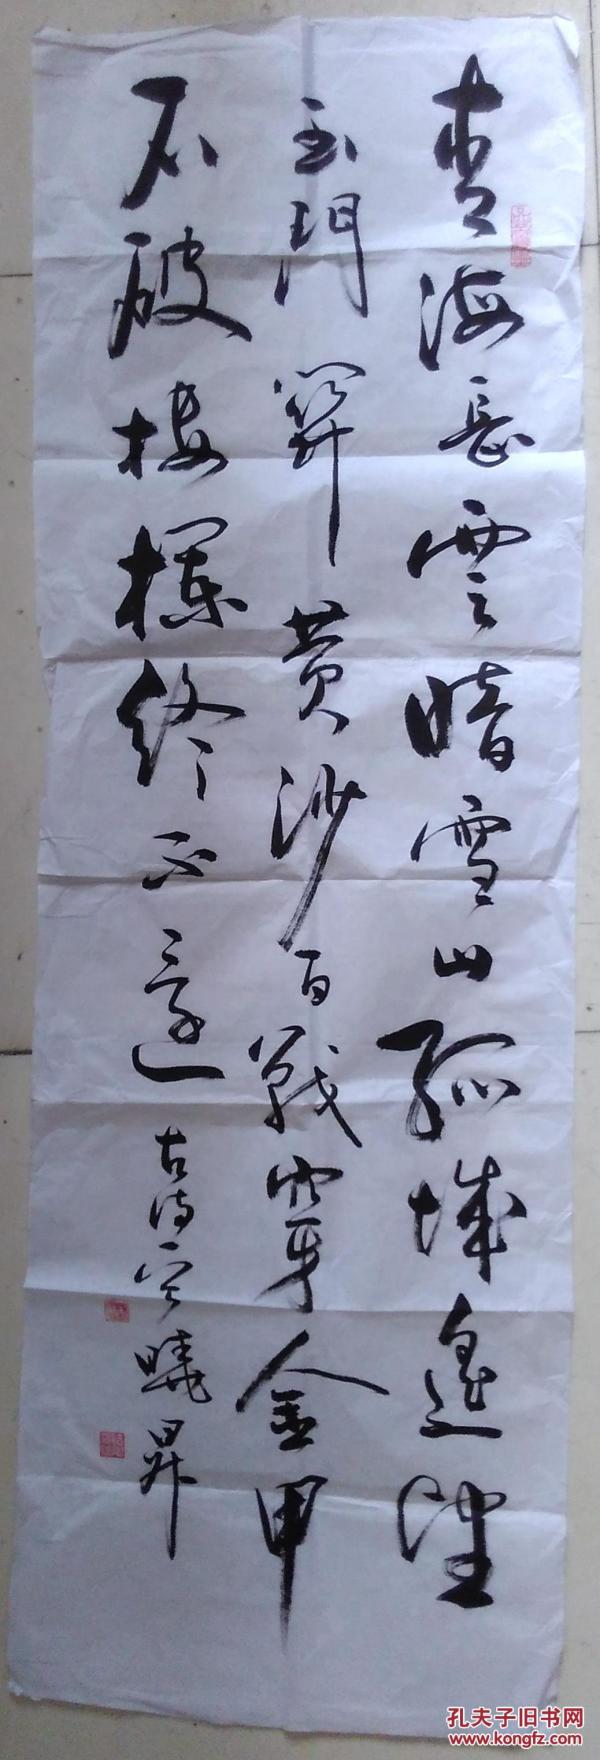 青海長雲暗雪山孤城遙望
玉門關黃沙百戰穿金甲
不破樓欄終不還
古詩一首 曉昇
孔夫子旧书网
www.kongfz.com